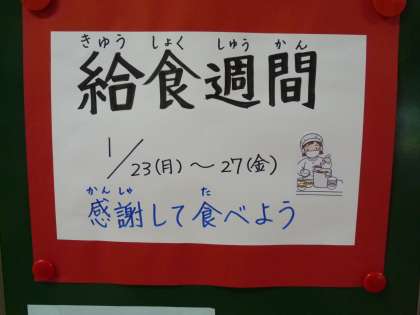 きゅう しょく しゅう かん
給食週間
1/23(月)～27(金)
かんしゃ た
感謝して食べよう